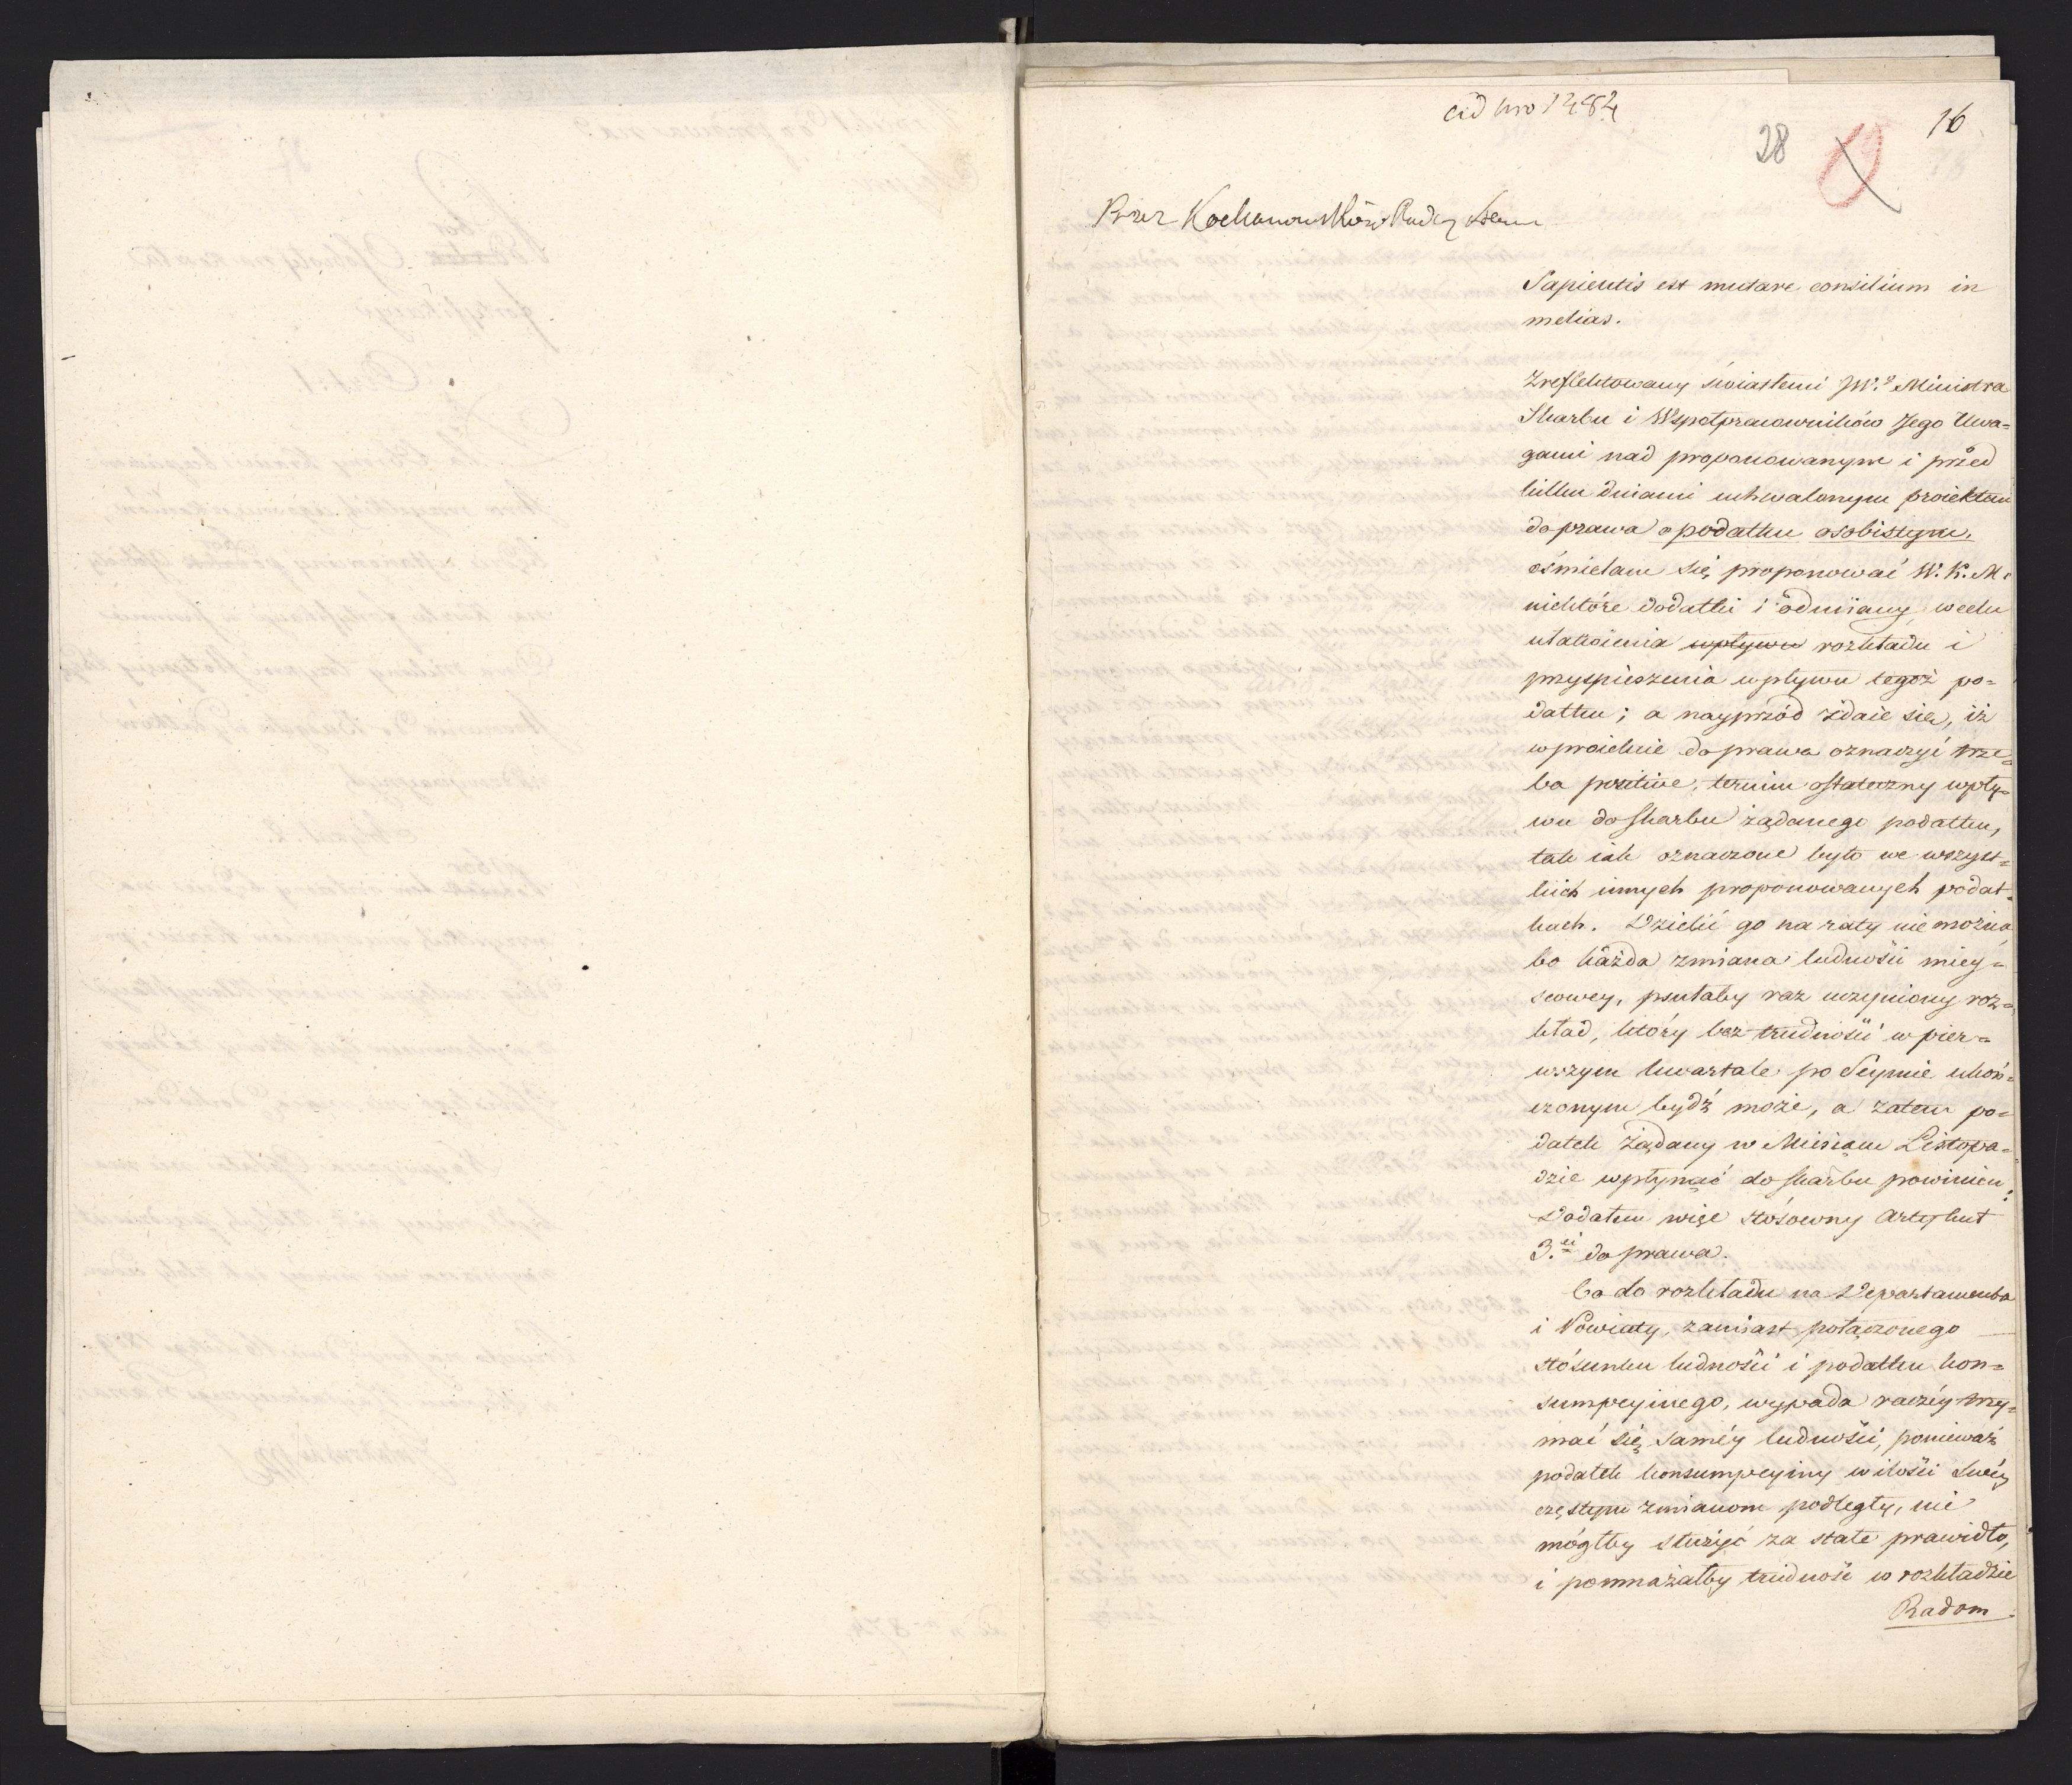 ad nro 1484
16
28
Przez Kochanowskiego Radcę Stanu
Sapientis est mutare consilium in
melias.
Zreflektowany światłemi JW.º Ministra
Skarbu i Współpracowników Jego Uwa=
gami nad proponowanym i przed
kilku dniami uchwalonym proiektem
do prawa o podatku osobistym,
ośmielam się proponować W. K. M.
niektóre dodatki i odmiany, wcelu
ułatwienia wpływu rozkładu i
przyspieszenia wpływu tegoż po=
datku; a nayprzód zdaie się, iż
w proiekcie do prawa oznaczyć trze=
ba pozitive, termin ostateczny wpły=
wu do skarbu żądanego podatku,
tak iak oznaczone było we wszyst=
kich innych proponowanych podat=
kach. Dzielić go na raty nie można,
bo każda zmiana ludności miey=
scowey, psułaby raz uczyniony roz=
kład, który bez trudności w pier=
wszym kwartale po Seymie ukoń=
czonym bydź może, a zatem po=
datek żądany w Miesiącu Listopa=
dzie wpłynąć do skarbu powinien.
Dodałem więc stósowny Artykuł
3.ci do prawa.
Co do rozkładu na Departamenta
i Powiaty, zamiast połączonego
stósunku ludności i podatku kon=
sumpcyinego, wypada raczéy trzy=
mać się saméy ludności, ponieważ
podatek konsumpcyiny w ilości swéy
częstym zmianom podległy, nie
mógłby służyć za stałe prawidło,
i pomnażałby trudność w rozkładzie
Radom